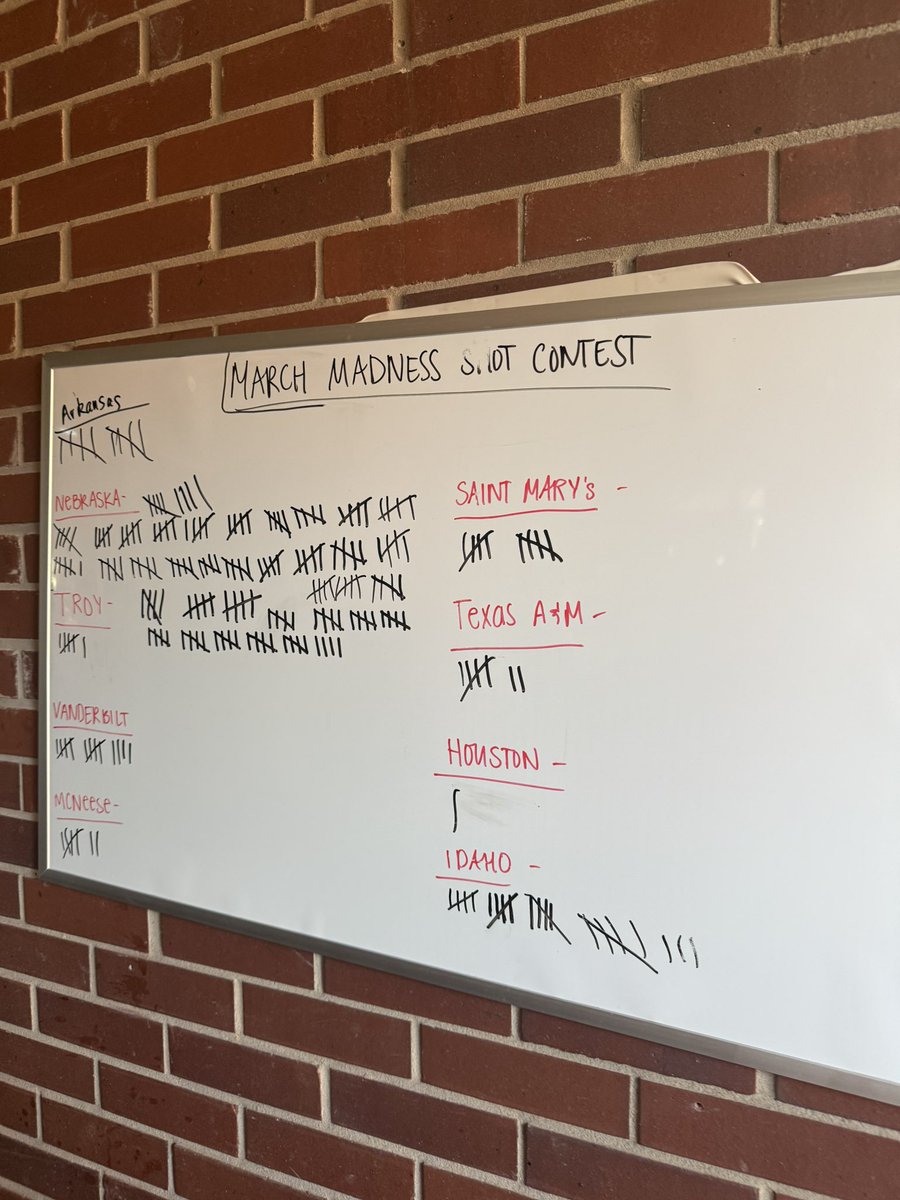 MARCH MADNESS SHOT CONTEST
Arkansas
NEBRASKA-
TROY-
VANDERBILT
MCNeese-
SAINT MARY's -
Texas A&M-
HOUSTON -
IDAHO -